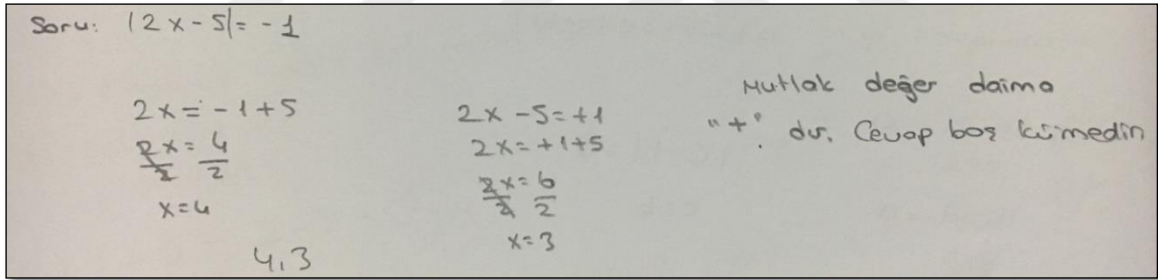 Soru: |2x-5|= -1
2x = -1+5
2x/2 = 4/2
x=4
4,3
2x -5=+1
2x=+1+5
2x/2 = 6/2
x=3
Mutlak değer daima
"+" dır. Cevap boş kümedir